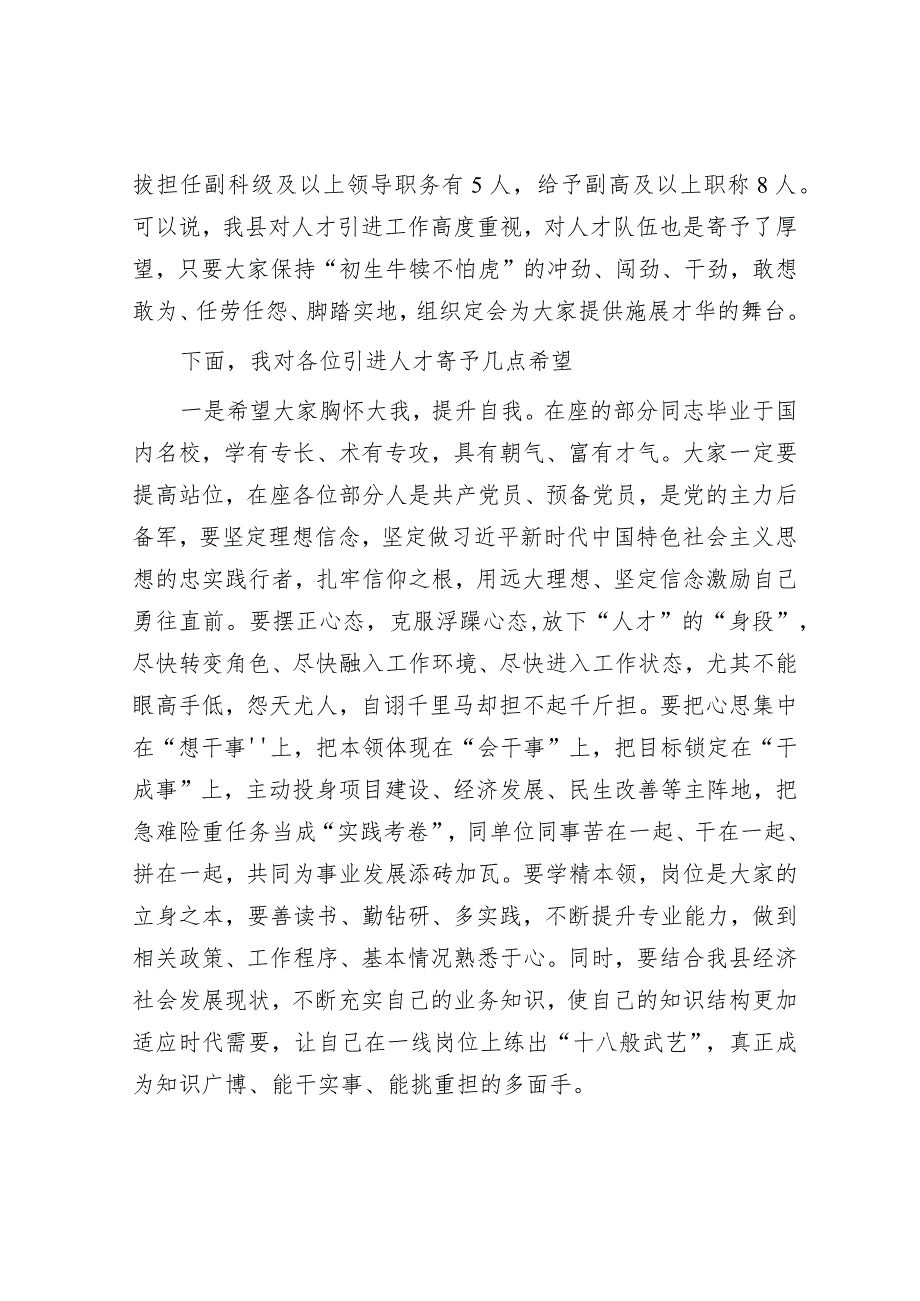 拔担任副科级及以上领导职务有 5 人，给予副高及以上职称 8 人。
可以说，我县对人才引进工作高度重视，对人才队伍也是寄予了厚
望，只要大家保持“初生牛犊不怕虎”的冲劲、闯劲、干劲，敢想
敢为、任劳任怨、脚踏实地，组织定会为大家提供施展才华的舞台。
下面，我对各位引进人才寄予几点希望
一是希望大家胸怀大我，提升自我。在座的部分同志毕业于国
内名校，学有专长、术有专攻，具有朝气、富有才气。大家一定要
提高站位，在座各位部分人是共产党员、预备党员，是党的主力后
备军，要坚定理想信念，坚定做习近平新时代中国特色社会主义思
想的忠实践行者，扎牢信仰之根，用远大理想、坚定信念激励自己
勇往直前。要摆正心态，克服浮躁心态,放下“人才”的“身段”，
尽快转变角色、尽快融入工作环境、尽快进入工作状态，尤其不能
眼高手低，怨天尤人，自诩千里马却担不起千斤担。要把心思集中
在“想干事''上，把本领体现在“会干事”上，把目标锁定在“干
成事”上，主动投身项目建设、经济发展、民生改善等主阵地，把
急难险重任务当成“实践考卷”，同单位同事苦在一起、干在一起、
拼在一起，共同为事业发展添砖加瓦。要学精本领，岗位是大家的
立身之本，要善读书、勤钻研、多实践，不断提升专业能力，做到
相关政策、工作程序、基本情况熟悉于心。同时，要结合我县经济
社会发展现状，不断充实自己的业务知识，使自己的知识结构更加
适应时代需要，让自己在一线岗位上练出“十八般武艺”，真正成
为知识广博、能干实事、能挑重担的多面手。